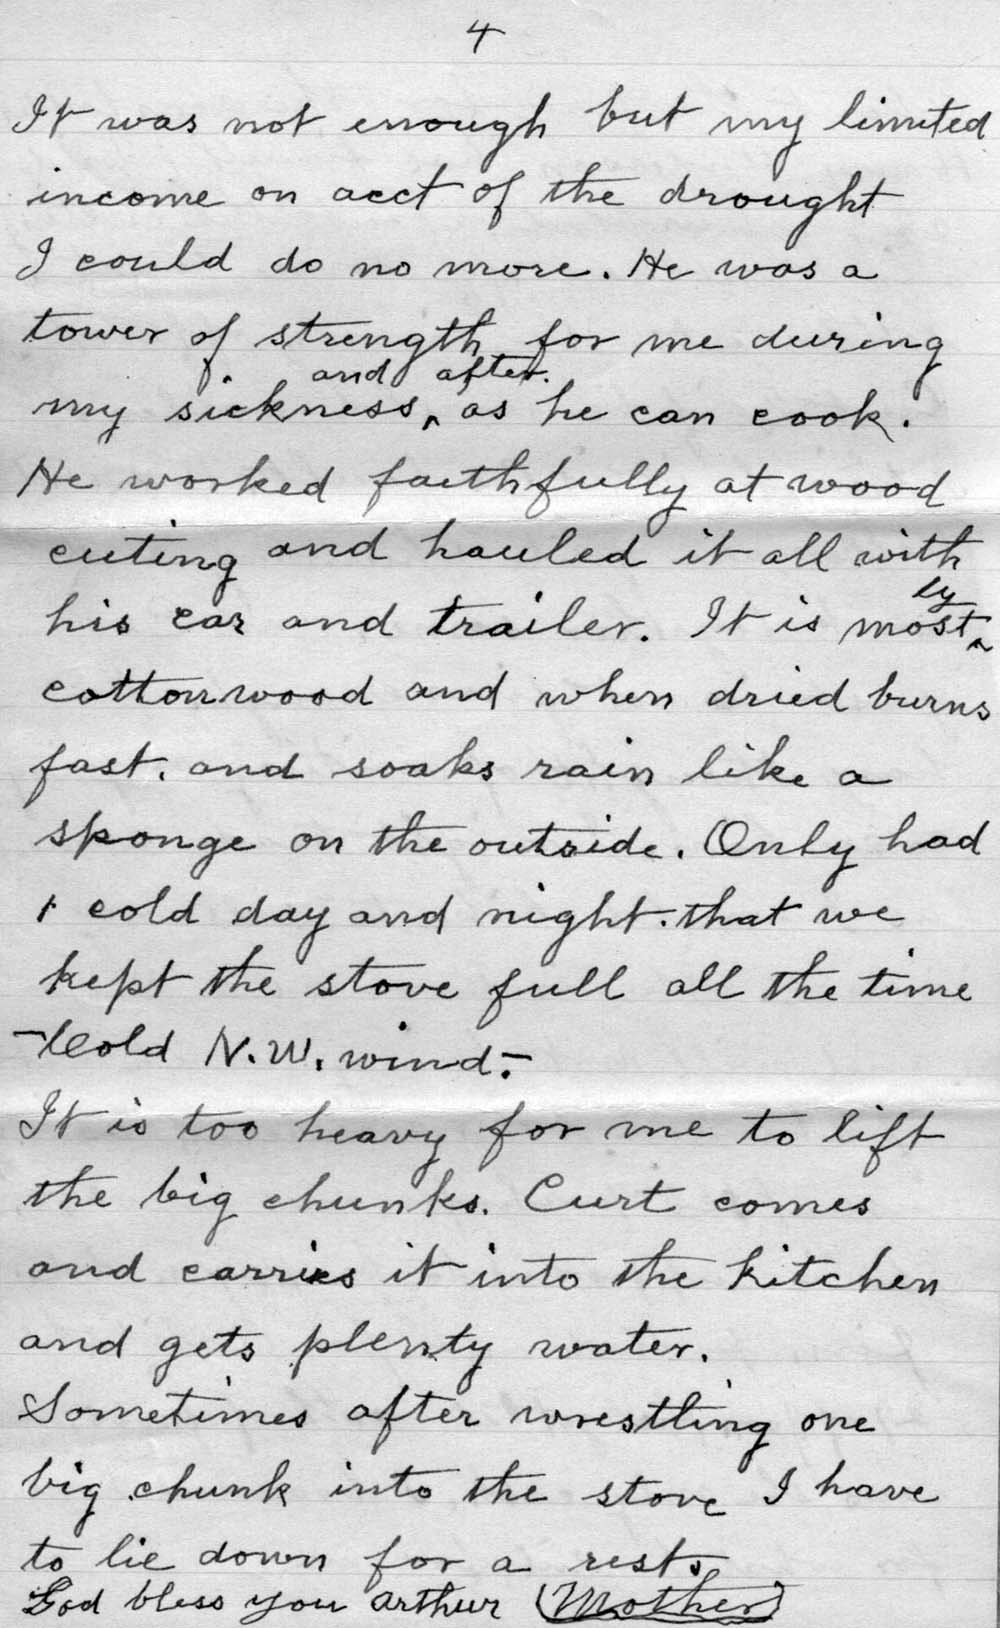 4
It was not enough but my limited
income on acct of the drought
I could do no more. He was a
tower of strength for me during
and after.
my sickness, ^ as he can cook.
He worked faithfully at wood
cuting and hauled it all with
his car and trailer. It is most^ly
cottonwood and when dried burns
fast. and soaks rain like a
sponge on the outside. Only had
1 cold day and night. that we
kept the stove full all the time
- Cold N.W. wind. -
It is too heavy for me to lift
the big chunks. Curt comes
and carries it into the kitchen
and gets plenty water.
Sometimes after wrestling one
big chunk into the stove I have
to lie down for a rest.
God bless you Arthur (Mother)